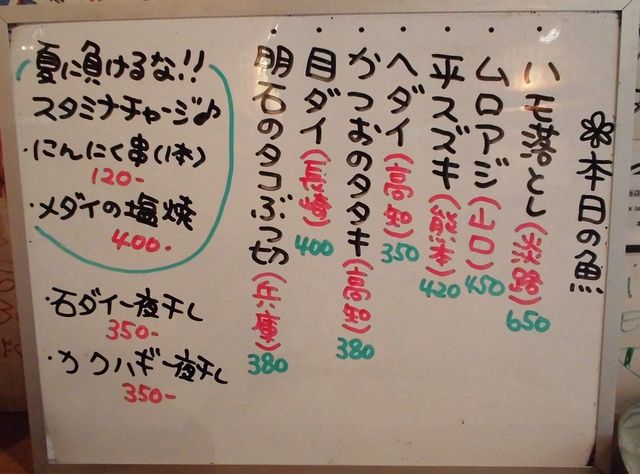 ❀本日の魚
・ハモ落とし(淡路) 650
・ムロアジ(山口) 450
・平スズキ(熊本) 420
・ヘダイ(高知) 350
・かつおのタタキ(高知) 380
・目ダイ(長崎) 400
・明石のタコぶつ切(兵庫) 380
夏に負けるな!!
スタミナチャージ♪
・にんにく串(1本)
120-
・メダイの塩焼
400-
・石ダイ一夜干し
350-
・カワハギ一夜干し
350-